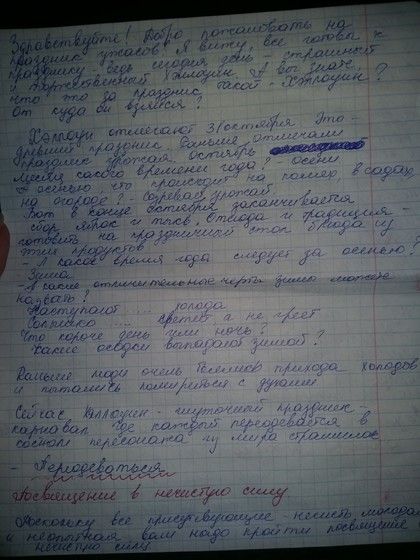 Здравствуйте! Добро пожаловать на
праздник ужасов. Я вижу, все готовы к
празднику - ведь сегодня день страшный
и торжественный Хэллоуин. А вы знаете,
что это за праздник такой - Хэллоуин?
От куда он взялся?
Хэллоуин отмечают 31 октября. Это -
древний праздник. Раньше отмечали
праздник урожая. октябрь
месяц какого времени года? - осени.
А осенью, что происходит на полях, в садах,
на огороде? - Созревает урожай.
Вот в конце октября заканчивается
сбор яблок и тыкв. Отсюда и традиция -
готовить на праздничный стол блюда из
этих продуктов.
- А какое время года следует за осенью?
- Зима.
- а какие отличительные черты зимы можете
назвать?
Наступают ... холода
Солнышко ... светит а не греет
Что короче день или ночь?
Какие осадки выпадают зимой?
Раньше люди очень боялись прихода холодов
и пытались помириться с духами
Сейчас, Хэллоуин - шуточный праздник -
карнавал где каждый переодевается в
персонажа из мира страшилок
- Переодеваться
Посвящение в нечистую силу.
Поскольку все присутствующие - нечисть молодая
и неопытная вам надо пройти посвящение
нечистую силу